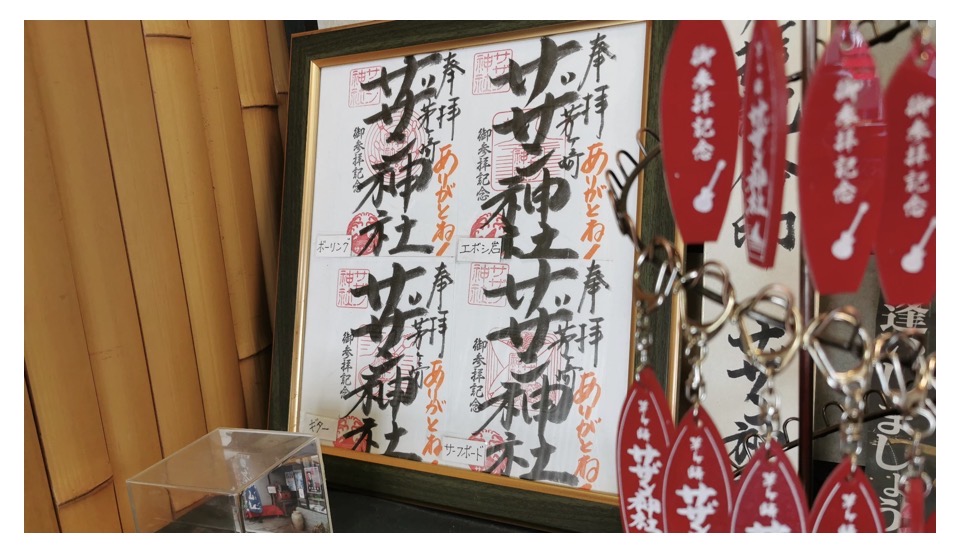 奉拝
茅ヶ崎
ありがとね!
サザン神社
御参拝記念
サザン神社
ボーリング
奉拝
茅ヶ崎
ありがとね!
サザン神社
御参拝記念
サザン神社
エボシ岩
奉拝
茅ヶ崎
ありがとね!
サザン神社
御参拝記念
サザン神社
ギター
奉拝
茅ヶ崎
ありがとね!
サザン神社
御参拝記念
サザン神社
サーフボード
御参拝記念
御参拝記念
御参拝記念
サザン神社
サザン神社
ましょう